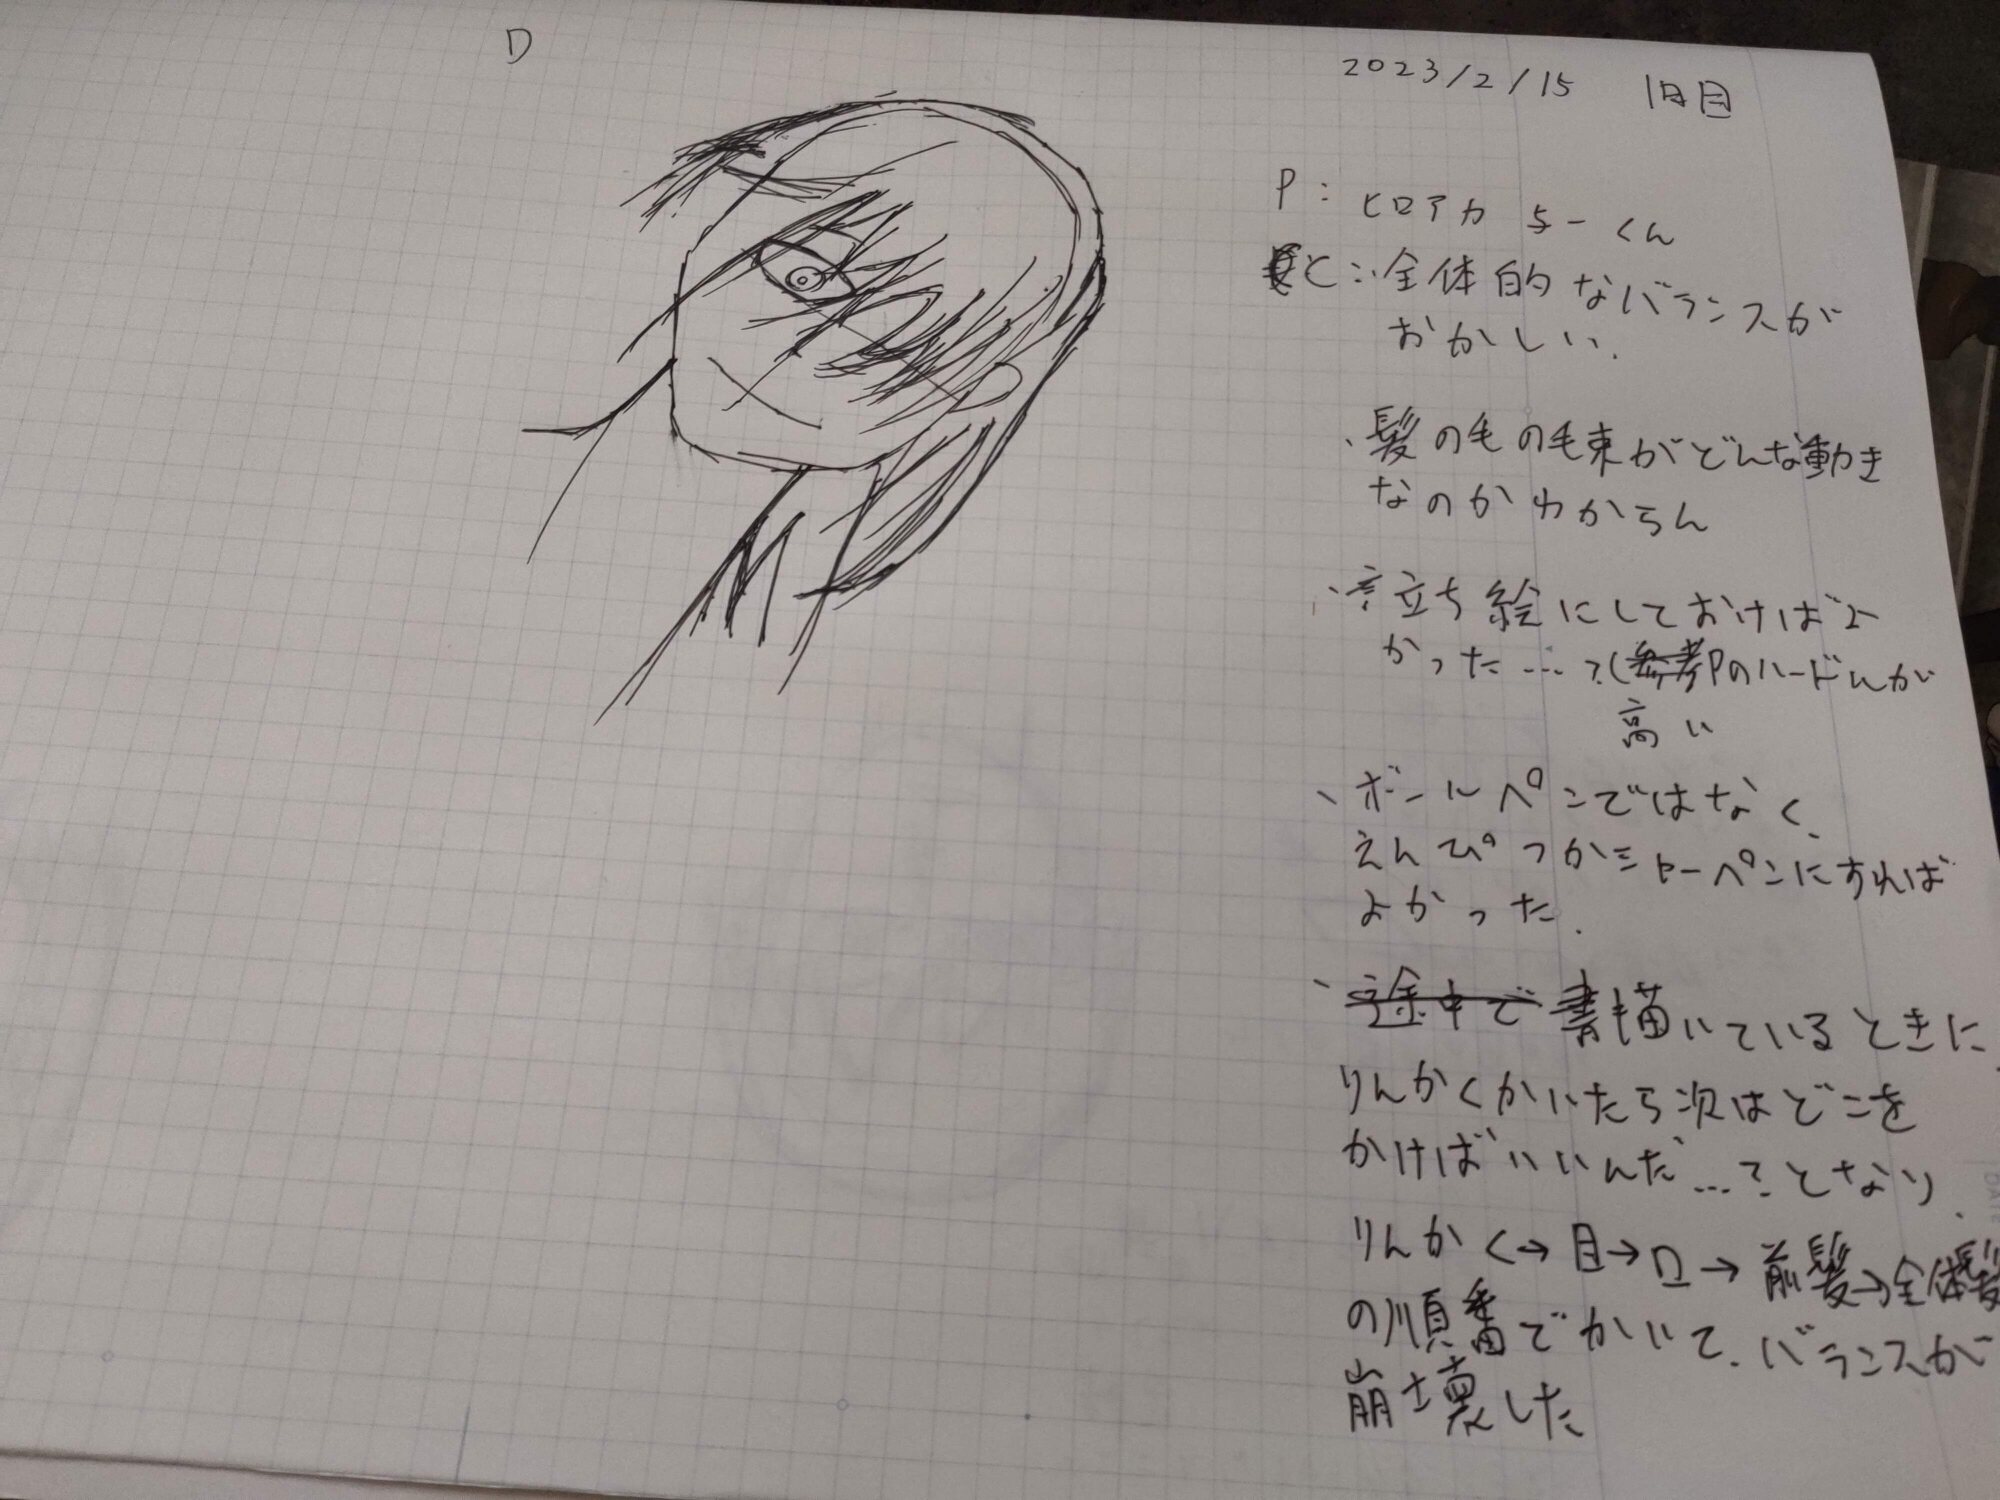 D
2023/2/15 1日目
P: ヒロアカ 与一くん
C:・全体的なバランスが
おかしい.
・髪の毛の毛束がどんな動き
なのかわからん
・立ち絵にしておけばよ
かった…?(参考Pのハードルが
高い
・ボールペンではなく、
えんぴつかシャーペンにすれば
よかった.
・途中で描いているときに
りんかくかいたら次はどこを
かけばいいんだ…?となり、
りんかく→目→口→前髪→全体髪
の順番でかいて、バランスが
崩壊した